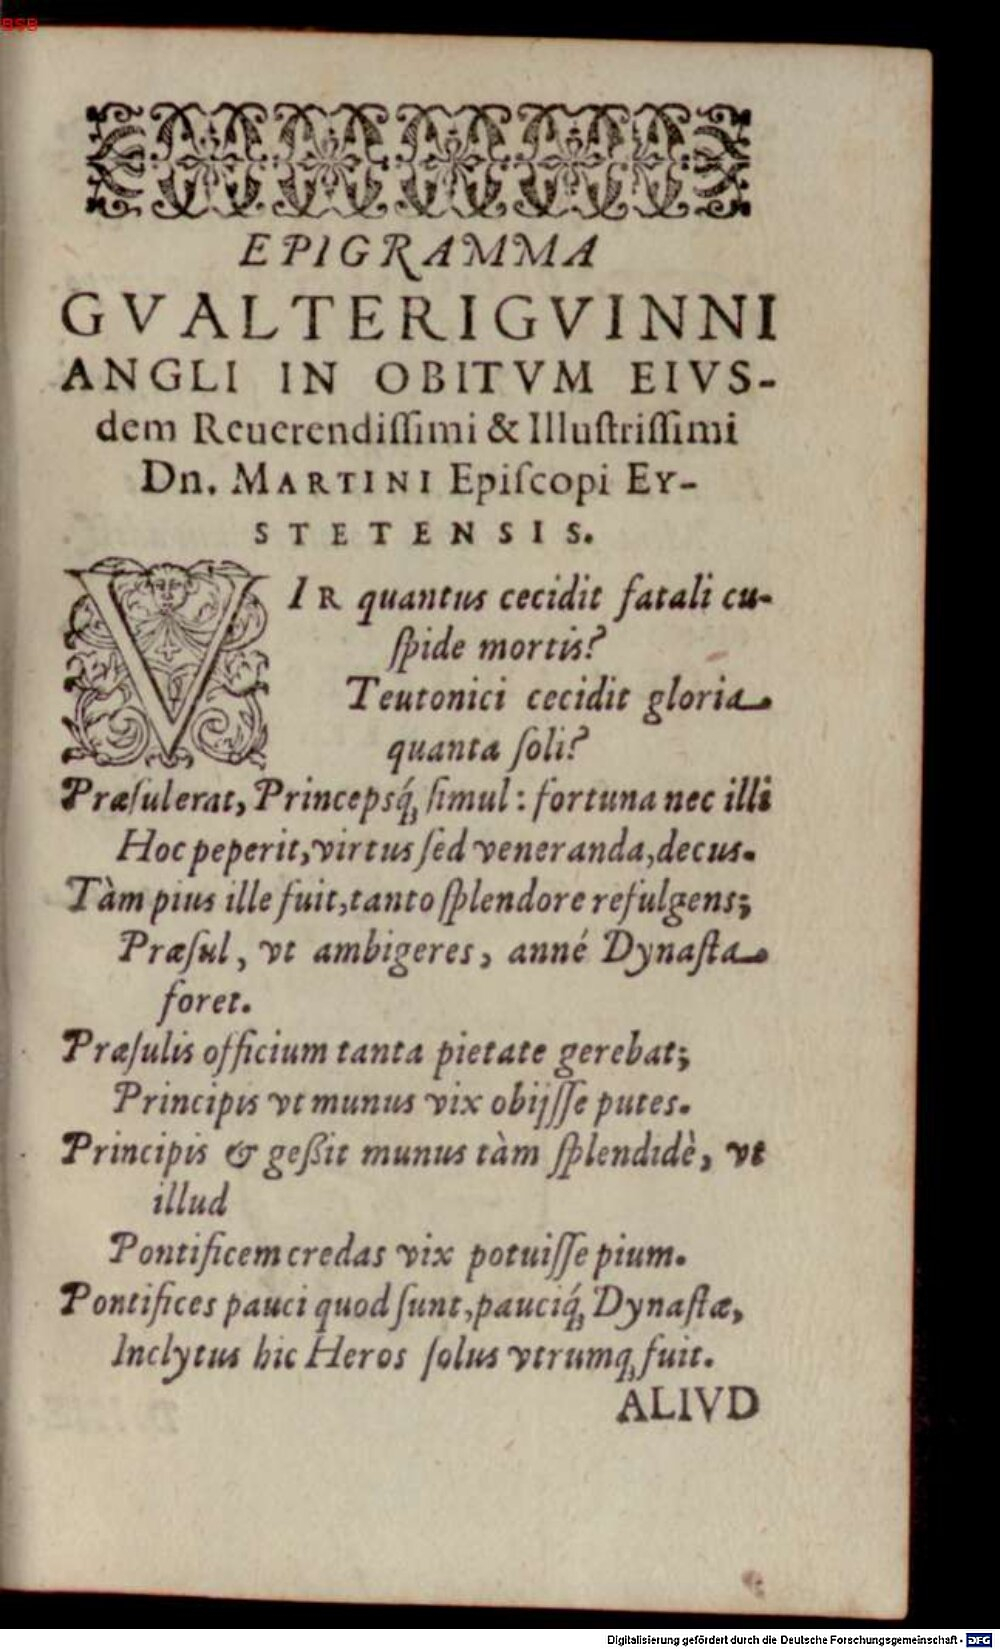 BSB
EPIGRAMMA
GVALTERI GVINNI
ANGLI IN OBITVM EIVS-
dem Reuerendiſſimi & Illuſtriſſimi
Dn. MARTINI Epiſcopi EY-
STETENSIS.
VIR quantus cecidit fatali cu-
ſpide mortis?
Teutonici cecidit gloria
quanta ſoli?
Præſul erat, Princepsq́; ſimul: fortuna nec illi
Hoc peperit, virtus ſed veneranda, decus.
Tàm pius ille fuit, tanto ſplendore refulgens;
Præſul, vt ambigeres, anné Dynaſta
foret.
Præſulis officium tanta pietate gerebat;
Principis vt munus vix obijſſe putes.
Principis & geßit munus tàm ſplendidè, vt
illud
Pontificem credas vix potuiſſe pium.
Pontifices pauci quod ſunt, pauciq́; Dynaſtæ,
Inclytus hic Heros ſolus vtrumq; fuit.
ALIVD
Digitalisierung gefördert durch die Deutsche Forschungsgemeinschaft - DFG